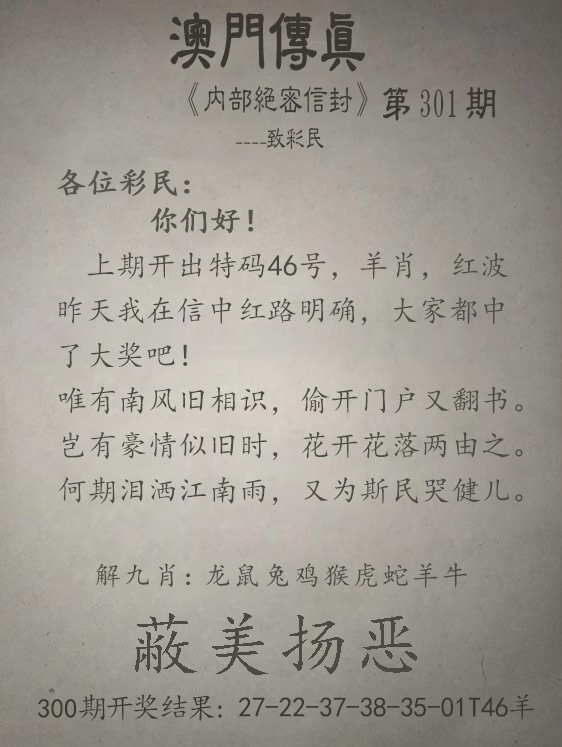 澳門傳真
《内部絕密信封》第301期
----致彩民
各位彩民：
你们好！
上期开出特码46号，羊肖，红波
昨天我在信中红路明确，大家都中
了大奖吧！
唯有南风旧相识，偷开门户又翻书。
岂有豪情似旧时，花开花落两由之。
何期泪洒江南雨，又为斯民哭健儿。
解九肖：龙鼠兔鸡猴虎蛇羊牛
蔽美扬恶
300期开奖结果：27-22-37-38-35-01T46羊